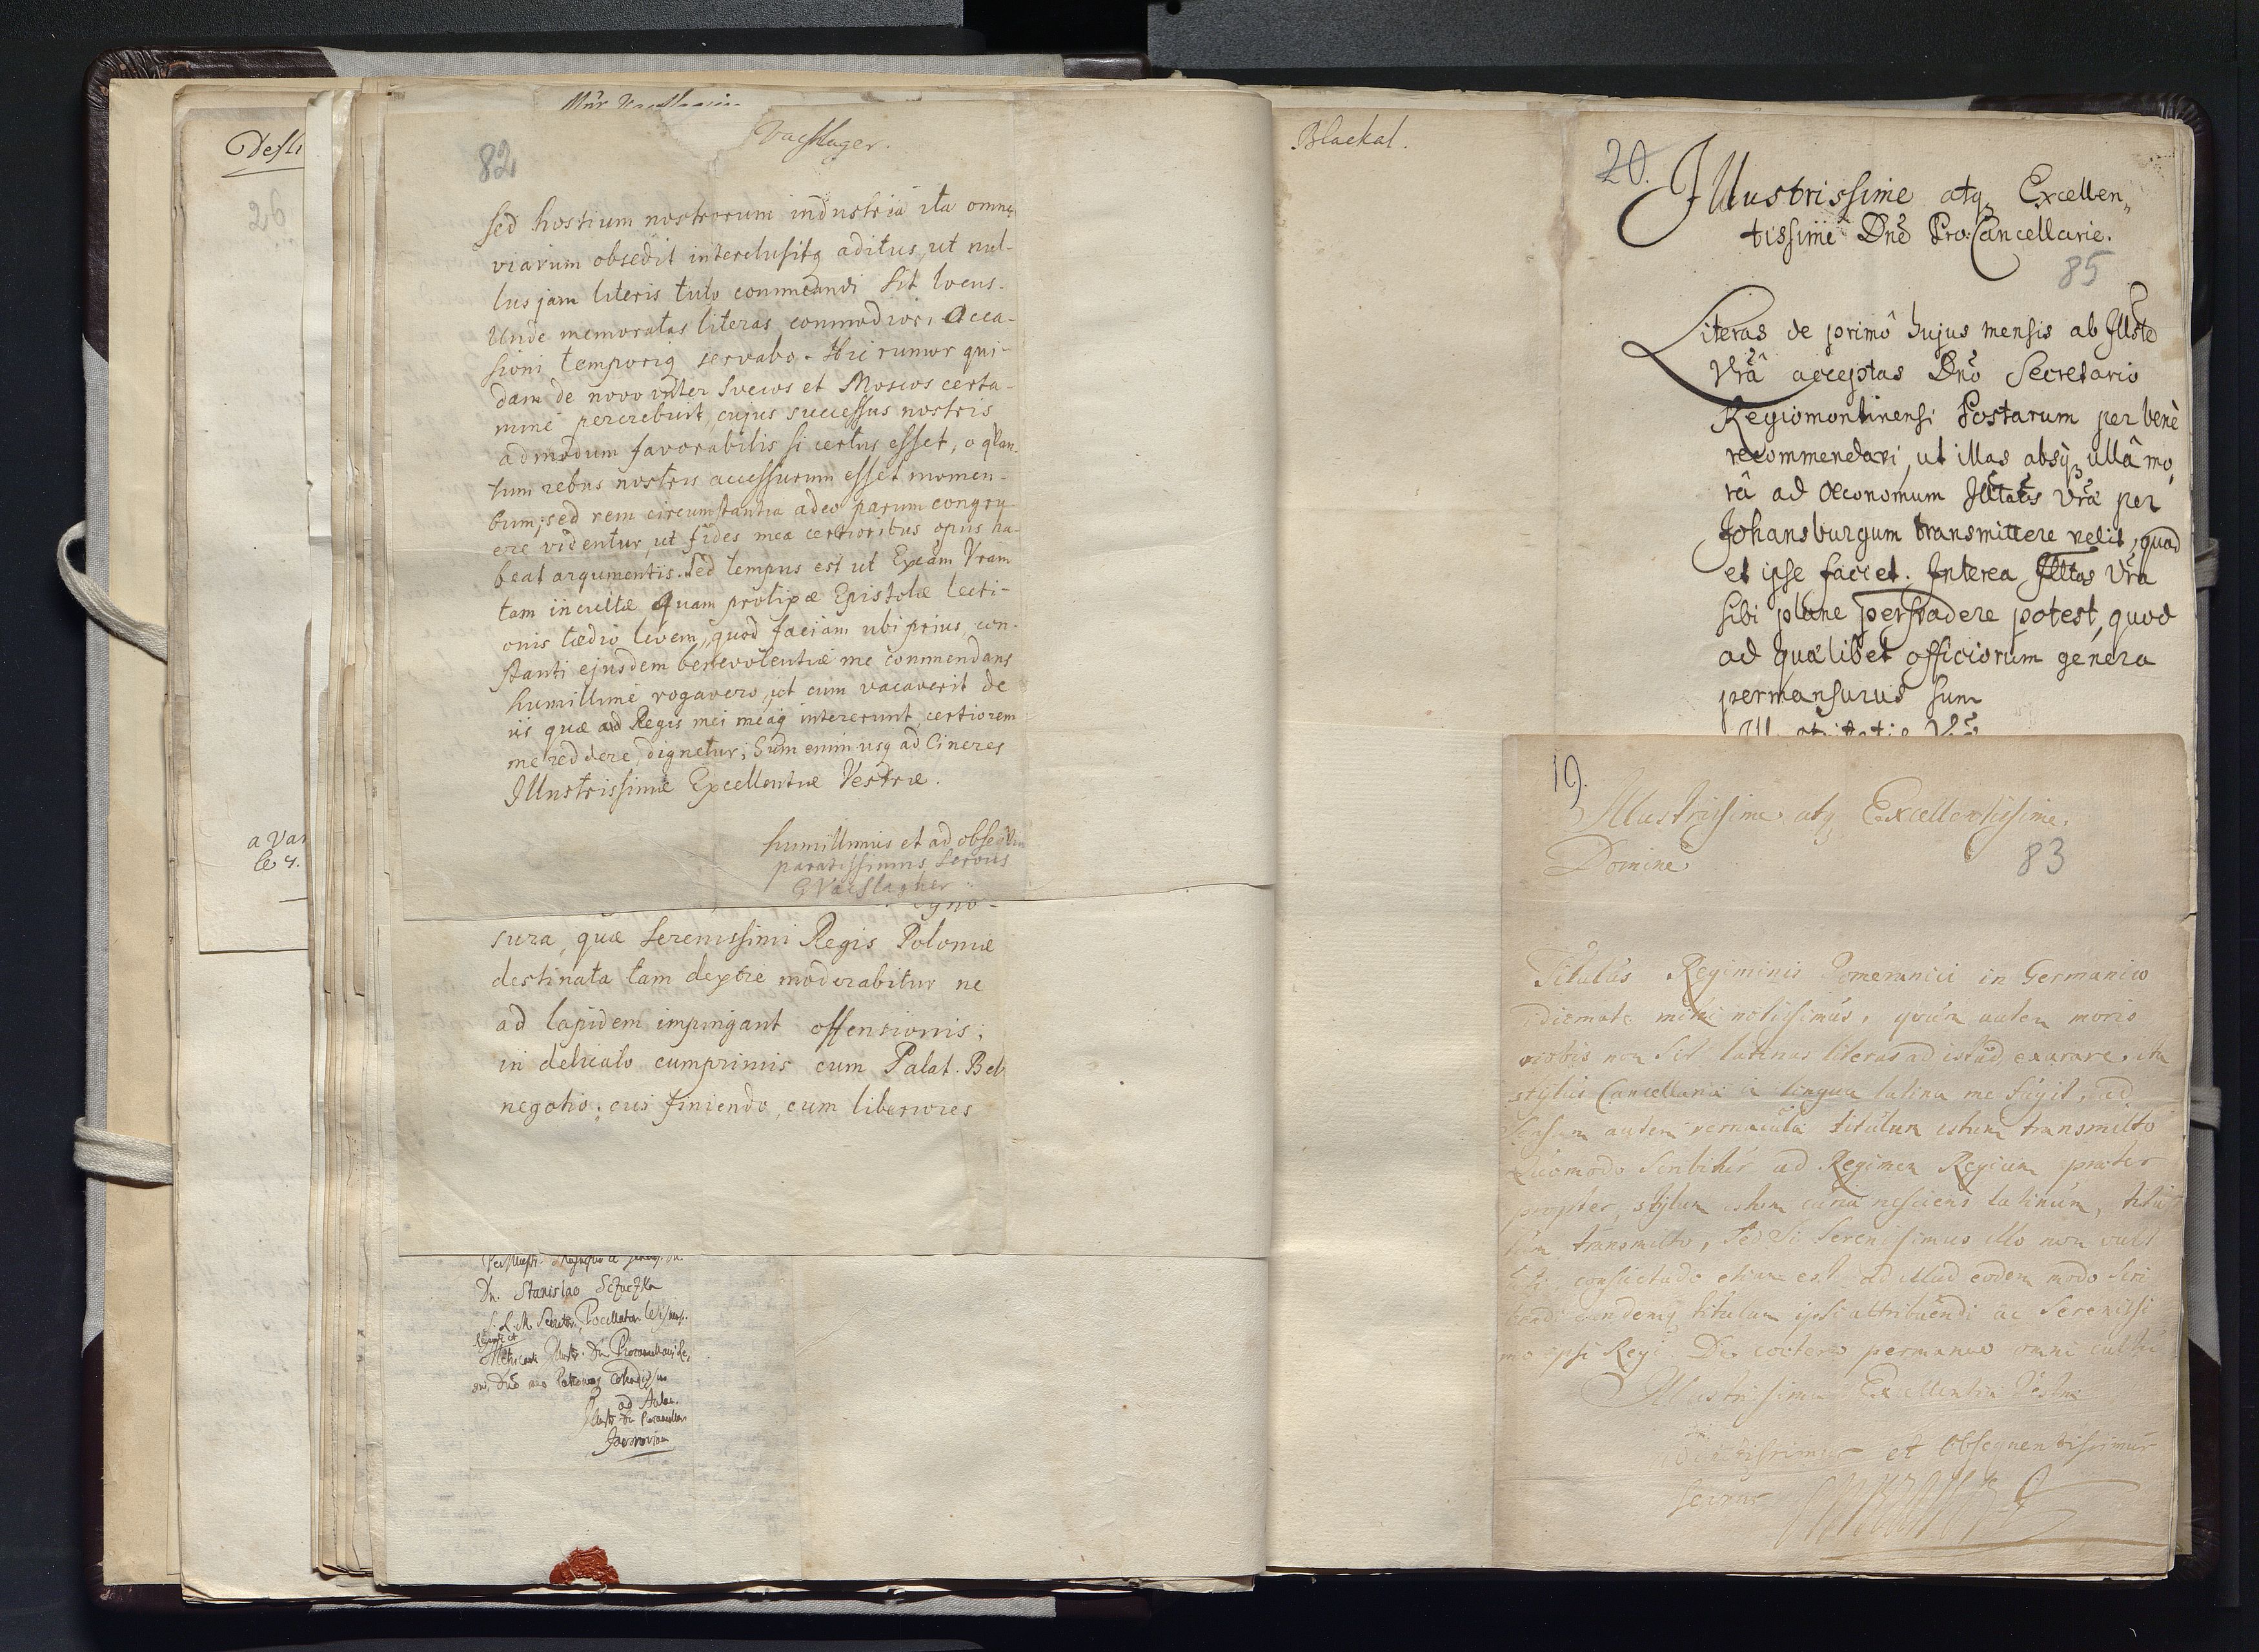 Desti
26
a Var
le 4.
Vaeslager.
82
sed hostium nostrorum industria ita omne
viarum obsedit interclusitq aditus, ut nul-
lus jam literis tuto commeandi sit locus.
Unde memoratas literas commodiori Occa-
sioni temporiq servabo. Hic rumor qui-
dam de novo inter Suecos et Moscos certa-
mine percrebuit, cujus successus nostris
admodum favorabilis si certus esset, o quan-
tum rebus nostris accessurum esset momen-
tum; sed rem circumstantia adeo parum congru-
ere videntur, ut fides mea certioribus opus ha-
beat argumentis. Sed tempus est ut Excam Vram
tam incultæ quam prolixæ Epistolæ lecti-
onis tædio levem, quod faciam ubi prius con-
stanti ejusdem benevolentiæ me commendans
humillime rogavero, ut cum vacaverit de
iis quæ ad Regis mei meaq intererunt, certiorem
me reddere dignetur; Sum enim usq ad Cineres
Illustrissimæ Excellentiæ Vestræ.
humillimus et ad obsequia
paratissimus servus
GVaeslagher
sura, quæ Serenissimi Regis Poloniæ
destinata tam dextre moderabitur ne
ad lapidem impingant offensionis;
in delicato cumprimis cum Palat. Bel
negotio; cui finiendo, cum liberiores
Dn. Stanislao Szczuczka
S. R. M. Secretar.
ad Aulam
Javoroviam
Blackal.
20.
Illustrissime atq Excellen„
tissime Dnē Pro:Cancellarie.
85
Literas de primô hujus mensis ab Illste
Vrâ acceptas Dnō Secretario
Regiomontinensi Postarum per benè
recommendavi, ut illas absq ullâ mo„
râ ad Oeconomum Illtatis Vrā per
Johansburgum transmittere velit, quod
et ipse faciet. Interea Illtas Vra
sibi plane persvadere potest, quod
ad quælibet officiorum genera
permansurus sum
19.
Illustrissime atq Excellentissime
Domine
83
Titulus Regiminis Pomeranici in Germanico
idiomate mihi notissimus, quum autem moris
nobis non sit latinas literas ad istud exarare, ita
stylus Cancellariæ in lingua latina me fugit, ad
sensum autem vernacula titulum istum transmitto
Quomodo scribitur ad Regimen Regium præter
propter, stylum istum curiæ nesciens latinum, titu
lum transmitto, sed si Serenissimus illo non vult
uti, consuetudo etiam est ad illud eodem modo scri
bendi eundemq titulum ipsi attribuendi ac Serenissi
mo ipsi Regi. De cætero permaneo omni cultu
Illustrissimæ Excellentiæ Vestræ
addictissimus et obsequentissimus
servus